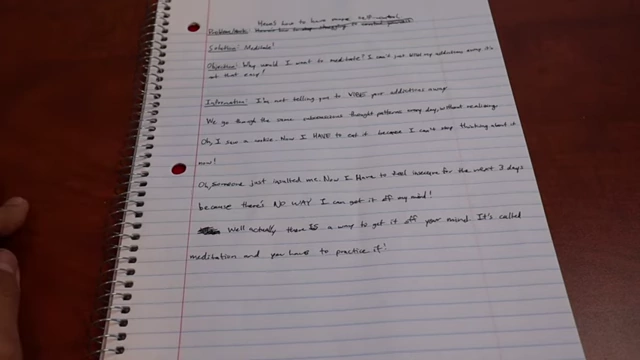 Here's how to have more self-control.
Problem/hook: Here's how to stop struggling to control yourself
Solution: Meditate!
Objection: Why would I want to meditate? I can't just vibe my addictions away, it's
not that easy!
Information: I'm not telling you to VIBE your addictions away
We go through the same subconscious thought patterns every day, without realizing
Oh, I saw a cookie. Now I HAVE to eat it because I can't stop thinking about it
now!
Oh, someone just insulted me. Now I have to feel insecure for the next 3 days
because there's NO WAY I can get it off my mind!
Well actually there IS a way to get it off your mind. It's called
meditation and you have to practice it!